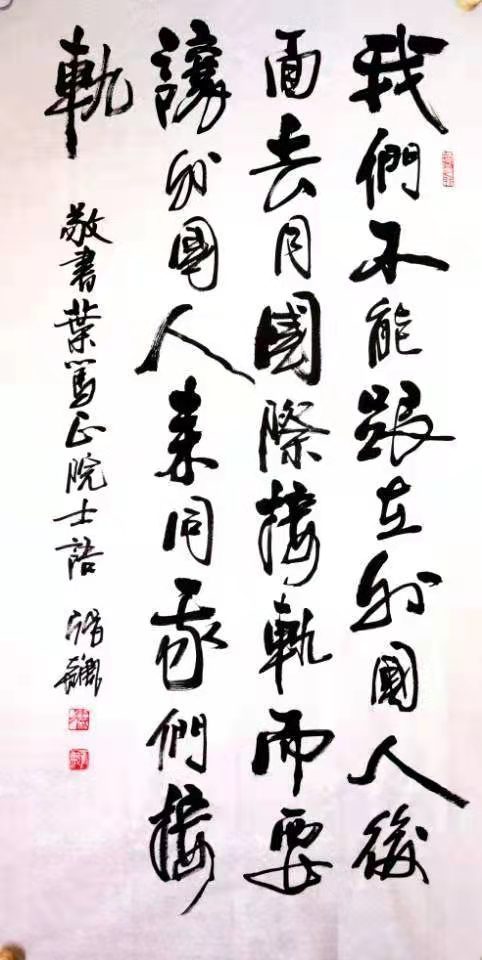 我們不能跟在外國人後
面去同國際接軌而要
讓外國人來同我們接
軌
敬書葉篤正院士語